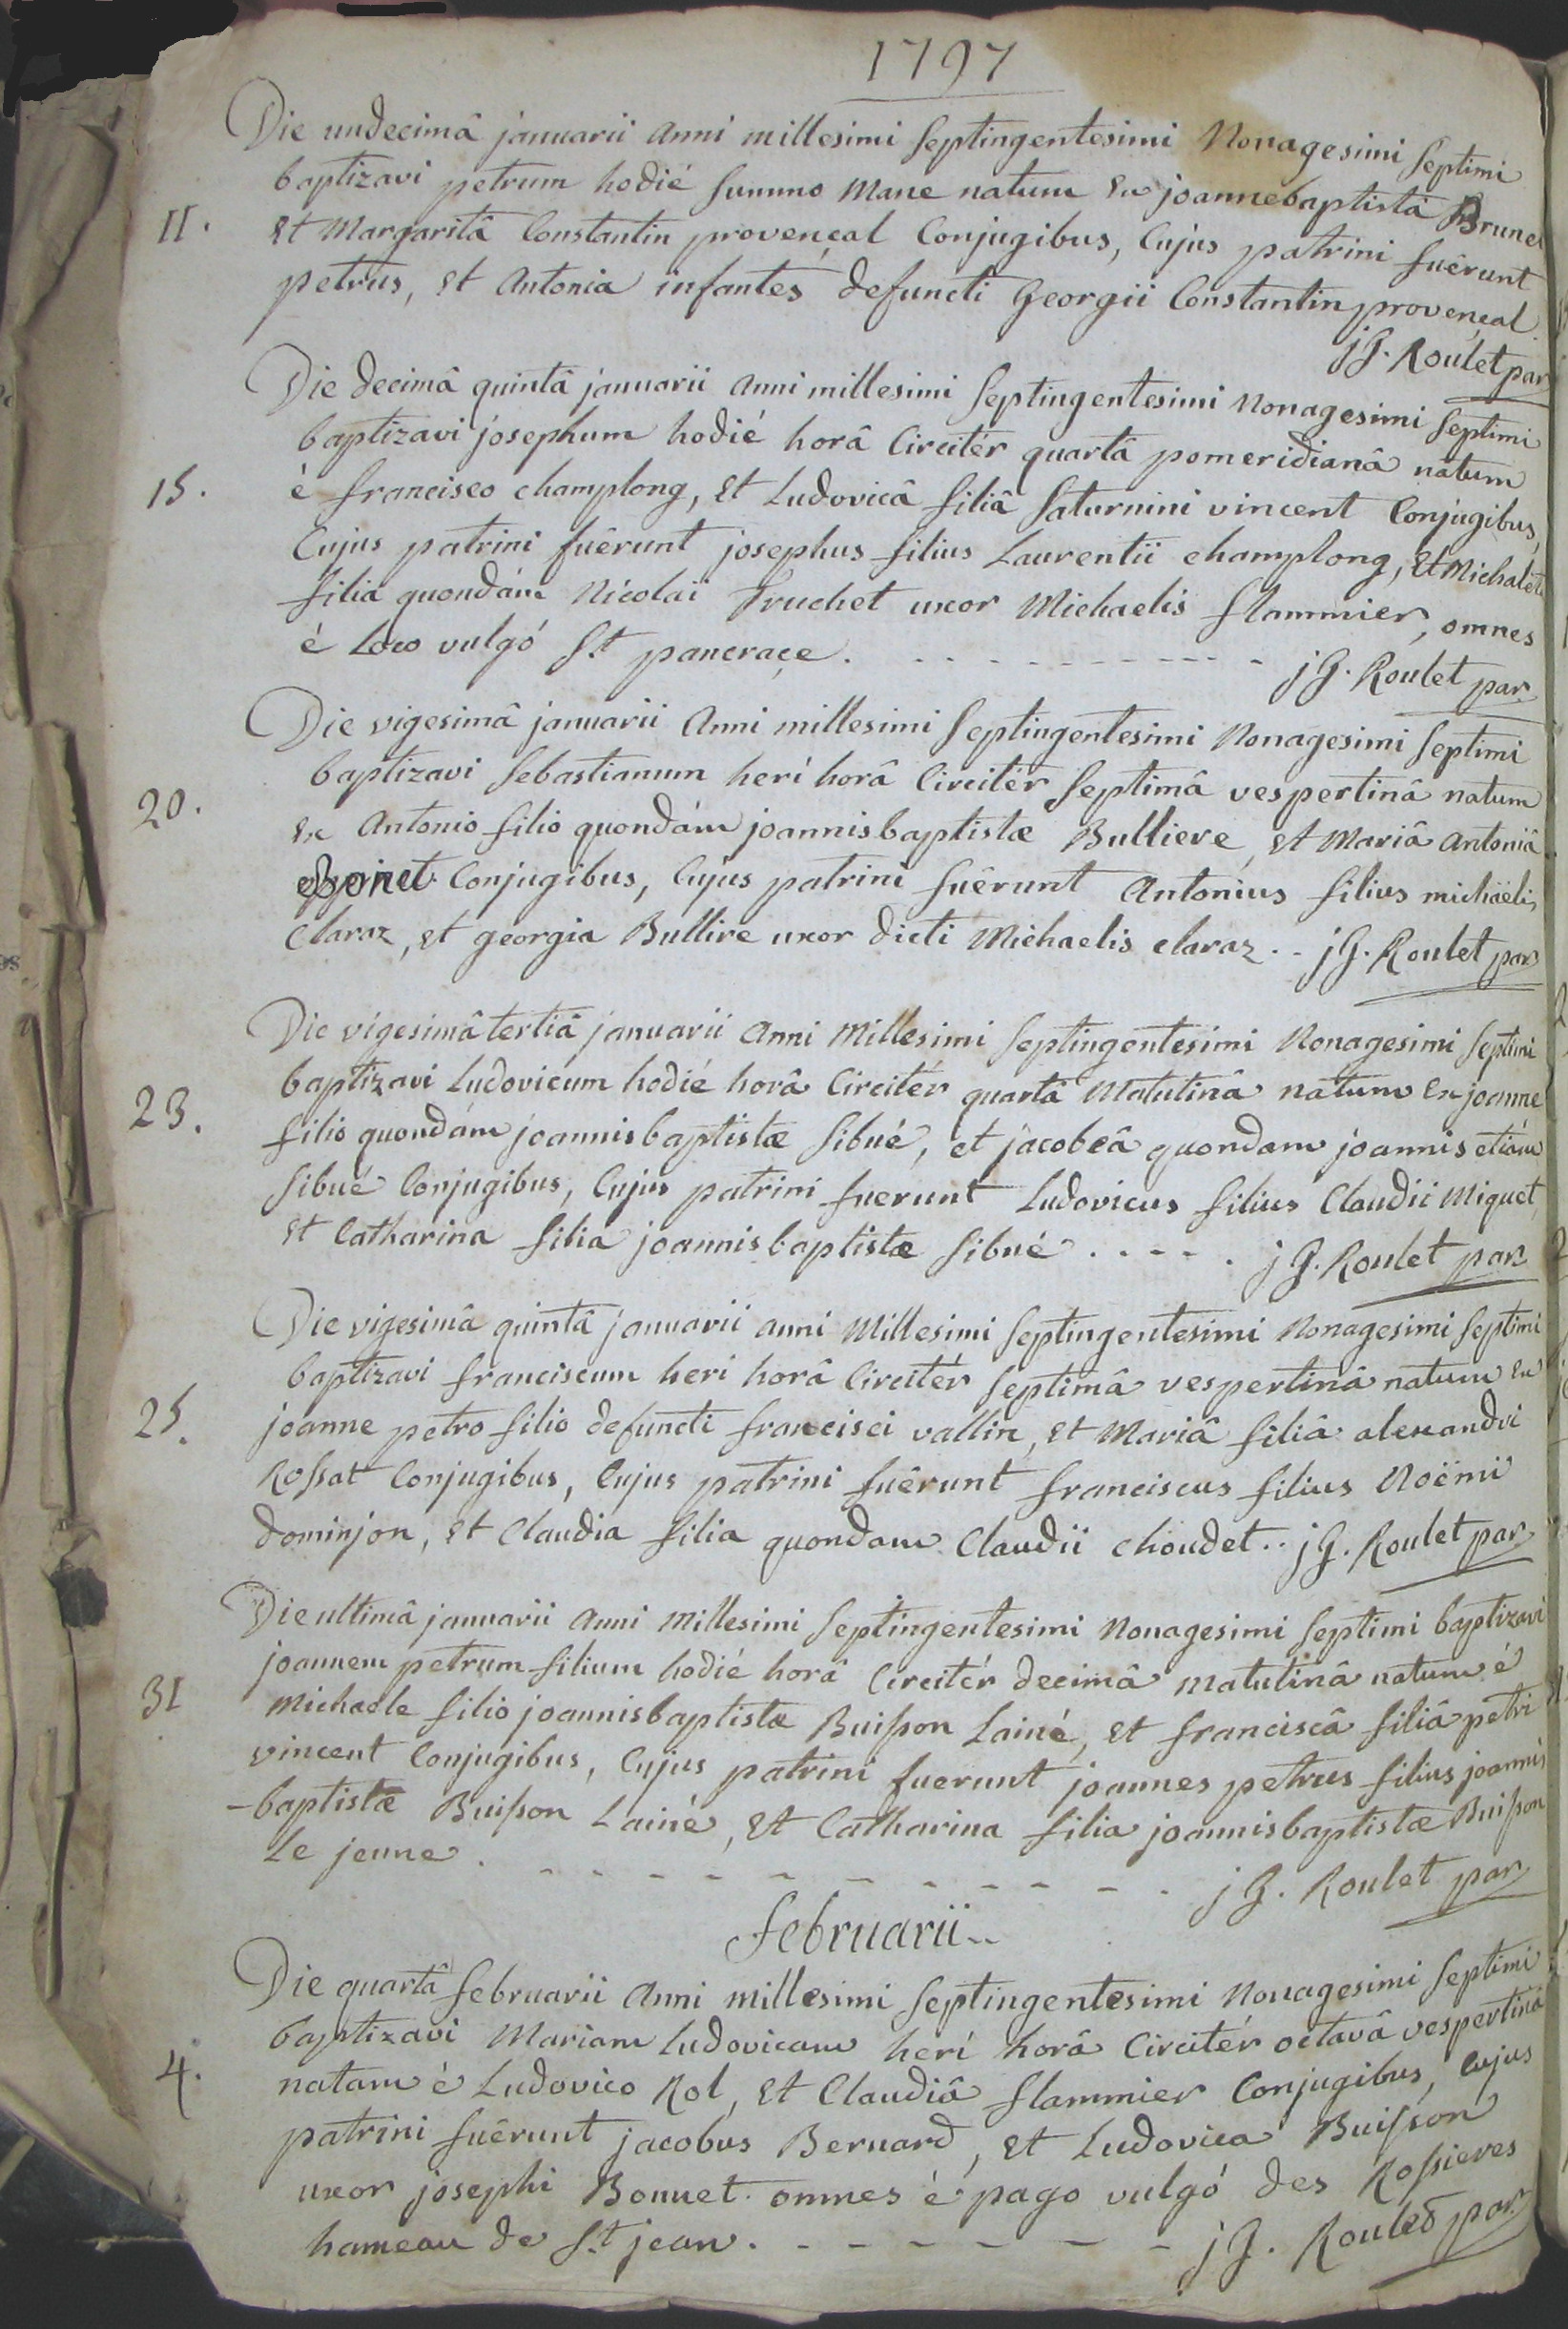 1797
Die undecimâ januarii anni millesimi Septingentesimi Nonagesimi Septimi
baptizavi petrum hodié Summo Mane natum ex joannebaptistâ Brunet
11. Et Margaritâ Constantin provençal Conjugibus, Cujus patrini fuêrunt
petrus, et Antonia infantes defuncti Georgii Constantin provençal
jG. Roulet par
Die decimâ quintâ januarii Anni millesimi Septingentesimi Nonagesimi Septimi
baptizavi josephum hodié horâ Circitér quartâ pomeridianâ natum
15. é francisco champlong, Et Ludovicâ filiâ Saturnini vincent Conjugibus,
Cujus patrini fuêrunt josephus filius Laurentii champlong, Et Michalet
filia quondám Nicolai Truchet uxor Michaelis flammier, omnes
é Loco vulgó St pancraçe. jG. Roulet par
Die vigesimâ januarii Anni millesimi Septingentesimi Nonagesimi Septimi
baptizavi Sebastianum herí horâ Circitér Septimâ vespertinâ natum
20. Ex Antonio filio quondám joannisbaptistæ Bulliere, et Mariâ Antoniâ
Bonet Conjugibus, Cujus patrini fuêrunt Antonius filius michäelis
Claraz, et georgia Bullire uxor dicti Michaelis claraz. . jG. Roulet par
Die vigesimâ tertiâ januarii Anni Millesimi Septingentesimi Nonagesimi Septimi
baptizavi Ludovicum hodié horâ Circitér quartâ Matutinâ natum Ex joanne
23. filio quondám joannisbaptistæ Sibué, et jacobeâ quondam joannis etiám
Sibué Conjugibus, Cujus patrini fuerunt Ludovicus filius Claudii Miquet,
Et Catharina filia joannisbaptistæ Sibué . - - - . jG. Roulet par
Die vigesimâ quintâ januarii anni Millesimi Septingentesimi Nonagesimi Septimi
baptizavi franciscum heri horâ Circitér Septimâ vespertinâ natum ex
25. joanne petro filio defuncti francisci vallin, et Mariâ filiâ alexandri
Rossat Conjugibus, Cujus patrini fuêrunt franciscus filius Noëmii
dominjon, et Claudia filia quondam Claudii choudet. . jG. Roulet par
Die ultimâ januarii Anni Millesimi Septingentesimi Nonagesimi Septimi baptizavi
joannem petrum filium hodié horâ Circitér decimâ matutinâ natum é
31 Michaele filio joannisbaptistæ Buisson Lainé, et franciscâ filiâ petri
vincent Conjugibus, Cujus patrini fuerunt joannes petrus filius joannis
-baptistæ Buisson Lainé, Et Catharina filia joannisbaptistæ Buisson
Le jeune . - - - - - - - - - . jG. Roulet par
februarii..
Die quartâ februarii Anni millesimi Septingentesimi Nonagesimi Septimi
baptizavi Mariam ludovicam herí horâ Circitér octavâ vespertinâ
4. natam é Ludovico Rol, et Claudiâ flammier Conjugibus, Cujus
patrini fuêrunt jacobus Bernard, et Ludovica Buisson
uxor josephi Bonnet. omnes é pago vulgó des Rossieres
hameau de St jean. - - - - - - jG. Roulet par